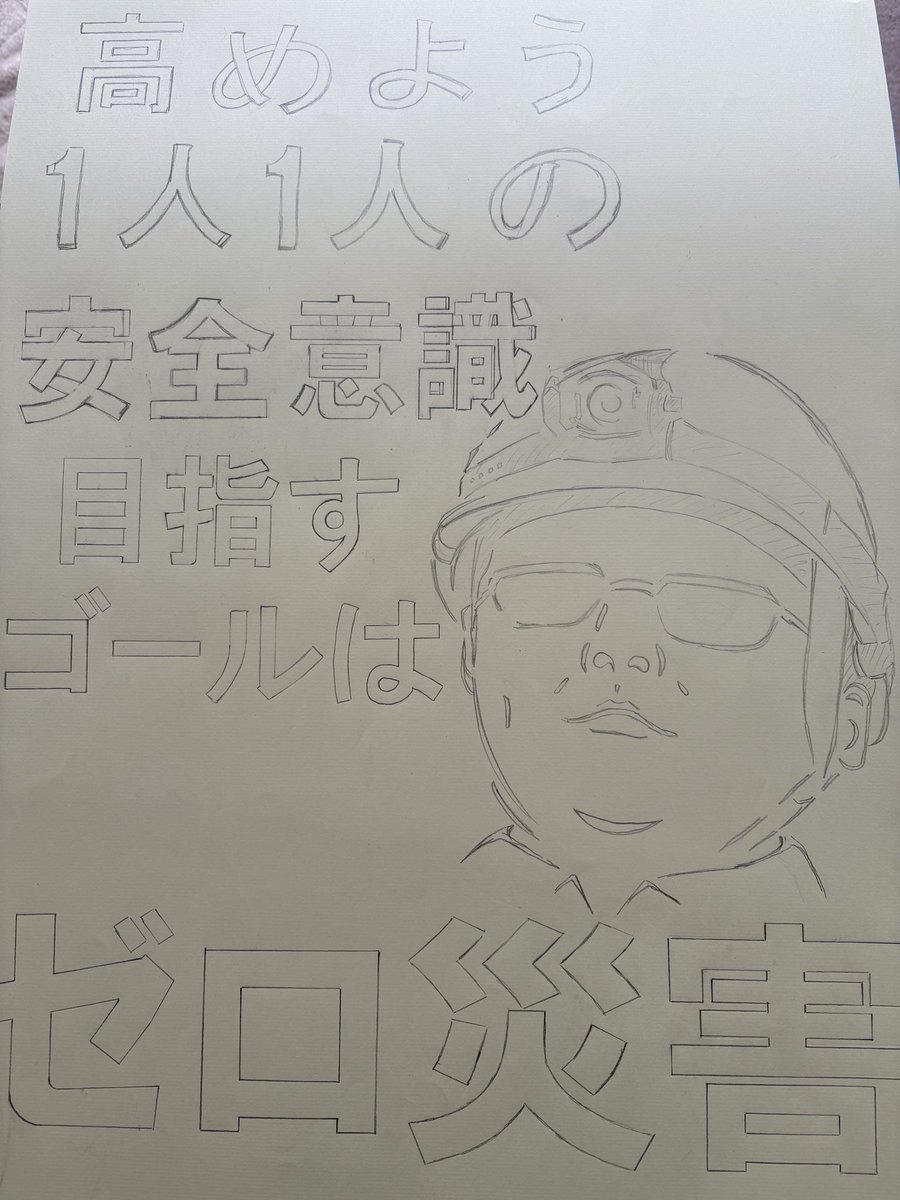 高めよう
1人1人の
安全意識
目指す
ゴールは
ゼロ災害